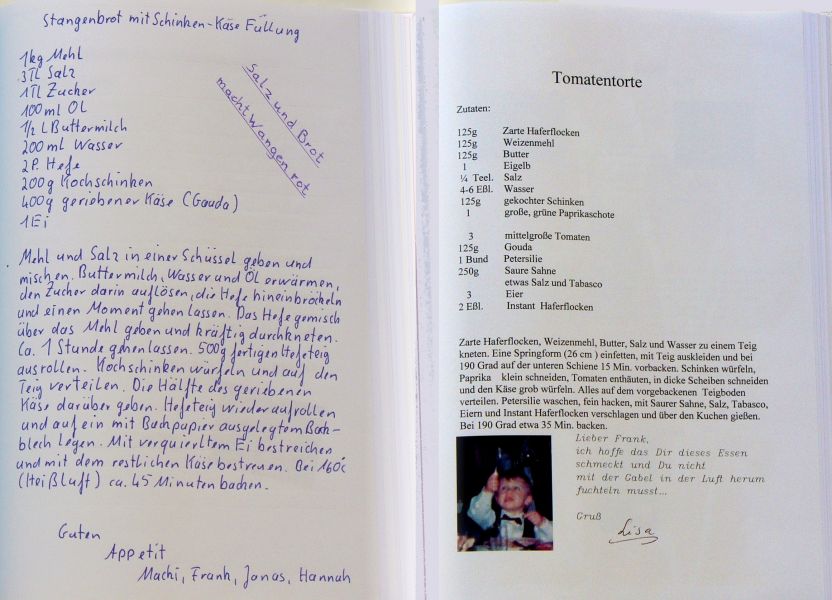 Stangenbrot mit Schinken-Käse Füllung
1kg Mehl
3TL Salz
1TL Zucker
100ml Öl
1/2 L Buttermilch
200ml Wasser
2P. Hefe
200g Kochschinken
400g geriebener Käse (Gouda)
1Ei
Salz und Brot
macht Wangen rot
Mehl und Salz in einer Schüssel geben und
mischen. Buttermilch, Wasser und Öl erwärmen,
den Zucker darin auflösen, die Hefe hineinbröckeln
und einen Moment gehen lassen. Das Hefegemisch
über das Mehl geben und kräftig durchkneten.
Ca. 1 Stunde gehen lassen. 500g fertigen Hefeteig
ausrollen. Kochschinken würfeln und auf den
Teig verteilen. Die Hälfte des geriebenen
Käse darüber geben. Hefeteig wieder aufrollen
und auf ein mit Backpapier ausgelegtem Back-
blech legen. Mit verquirltem Ei bestreichen
und mit dem restlichen Käse bestreuen. Bei 160°c
(Heißluft) ca. 45 Minuten backen.
Guten
Appetit
Machi, Frank, Jonas, Hannah
Tomatentorte
Zutaten:
125g Zarte Haferflocken
125g Weizenmehl
125g Butter
1 Eigelb
¼ Teel. Salz
4-6 Eßl. Wasser
125g gekochter Schinken
1 große, grüne Paprikaschote
3 mittelgroße Tomaten
125g Gouda
1 Bund Petersilie
250g Saure Sahne
etwas Salz und Tabasco
3 Eier
2 Eßl. Instant Haferflocken
Zarte Haferflocken, Weizenmehl, Butter, Salz und Wasser zu einem Teig
kneten. Eine Springform (26 cm ) einfetten, mit Teig auskleiden und bei
190 Grad auf der unteren Schiene 15 Min. vorbacken. Schinken würfeln,
Paprika klein schneiden, Tomaten enthäuten, in dicke Scheiben schneiden
und den Käse grob würfeln. Alles auf dem vorgebackenen Teigboden
verteilen. Petersilie waschen, fein hacken, mit Saurer Sahne, Salz, Tabasco,
Eiern und Instant Haferflocken verschlagen und über den Kuchen gießen.
Bei 190 Grad etwa 35 Min. backen.
Lieber Frank,
ich hoffe das Dir dieses Essen
schmeckt und Du nicht
mit der Gabel in der Luft herum
fuchteln musst...
Gruß
Lisa